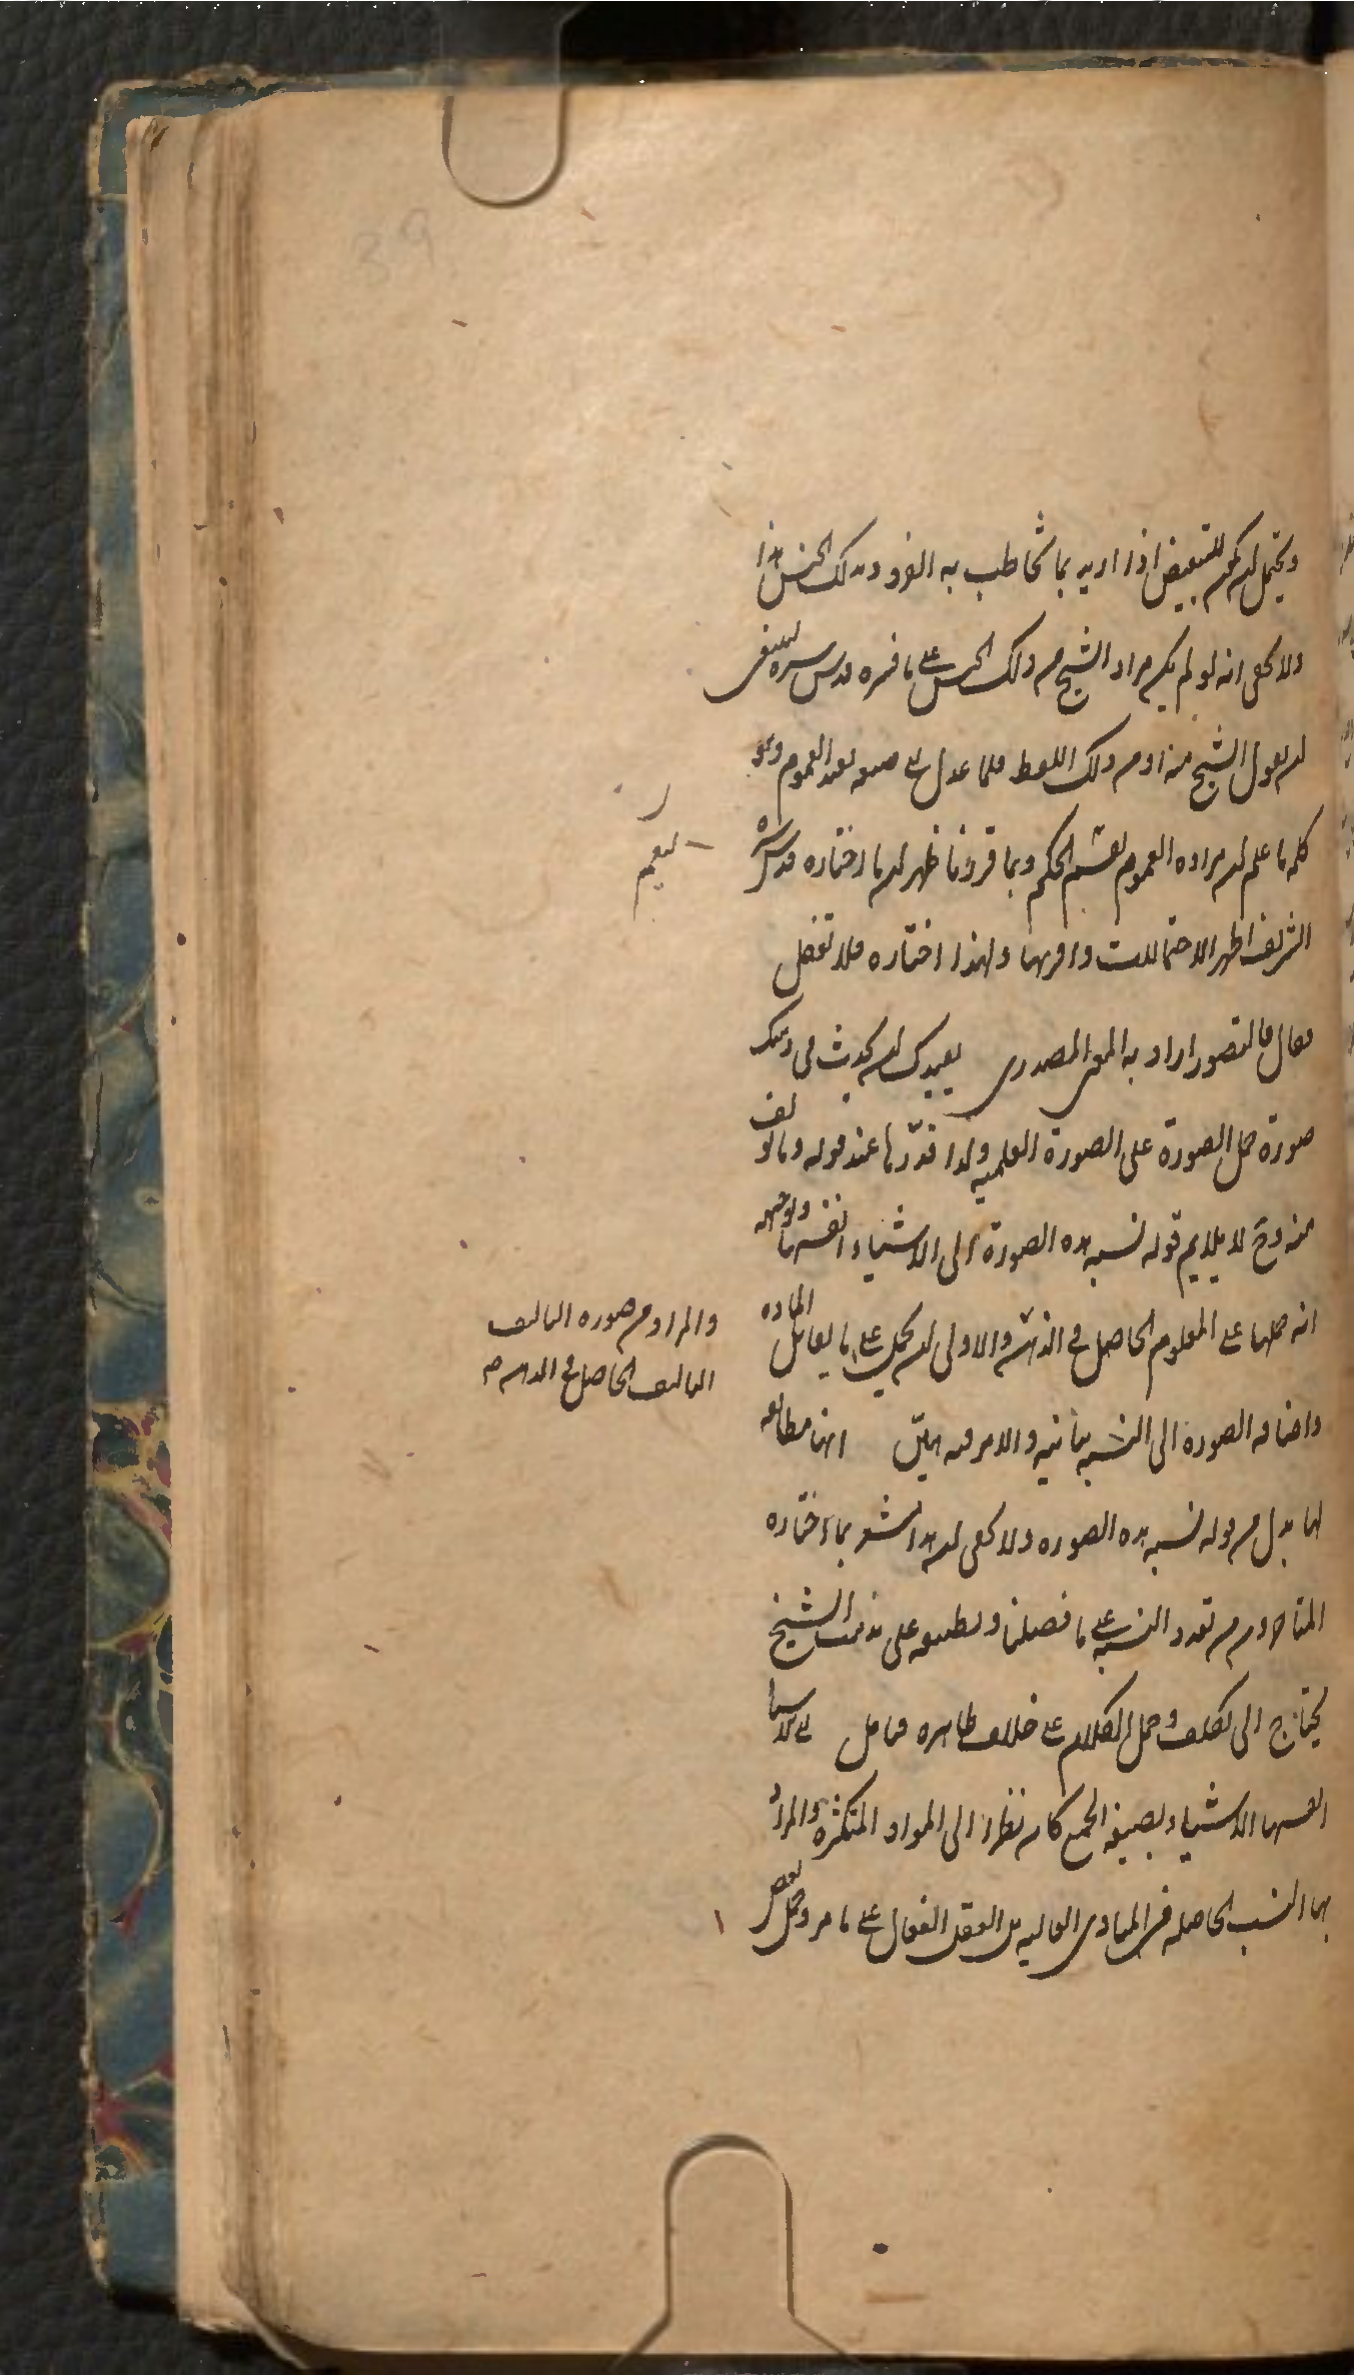 ويحتمل ان يكون للتبعيض اذا اريد بما يخاطب به الفرد من ذلك الجنس هذا
ولا يخفى انه لو لم يكن مراد الشيخ من ذلك الجنس على ما فسره قدس سره لينبغى
ان يقول الشيخ منه او من ذلك اللفظ فلما عدل الى صيغه تفيد العموم وهو
كلمه ما علم ان مراده العموم لقسم الحكم وبما قررنا ظهر ان ما اختاره قدس سره
لتعميم
الشريف اظهر الاحتمالات واقربها ولهذا اختاره فلا تغفل
فقال فالتصور اراد به المعنى المصدرى يفيدك ان يحدث فى ذهنك
صورة حمل الصورة على الصورة العلميه ولذا قدرها عند قوله وما يولف
منه وح لا يلايم قوله نسبه هذه الصورة الى الاشياء انفسها ولوجهه
انه حملها على المعلوم الحاصل فى الذهن والاولى ان يحمل على ما يقابل الماده
والمراد من صوره التاليف
التاليف الحاصل فى الذهن
واضافه الصورة الى النسبه بيانيه والامر فيه هين انها مطابقه
لها بدل من قوله نسبه هذه الصوره ولا يخفى ان هذا اشعر بما اختاره
المتاخرون من تعدد النسبه على ما فصلنا وتطبيقه على مذهب الشيخ
يحتاج الى تكلف وحمل الكلام على خلاف ظاهره فتامل الى الاشيا
انفسها الاشياء بصيغه الجمع كان نظرا الى المواد المتكثره والمراد
بها النسب الحاصله فى المبادى العاليه بل العقل الفعال على ما مر وحمل بعض